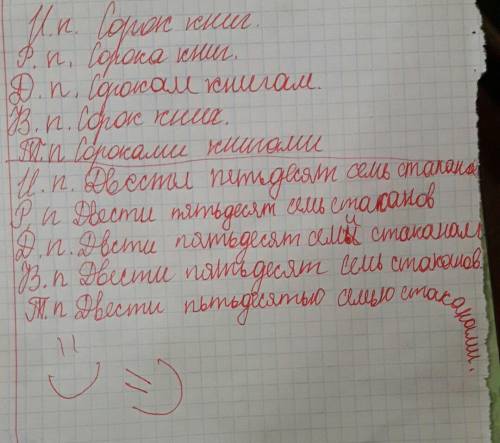 И.п. Сорок книг.
Р.п. Сорока книг.
Д.п. Сорокам книгам.
В.п. Сорок книг.
Т.п Сороками книгами
И.п. Двести пятьдесят семь стаканов
Р п Двести пятьдесят семь стаканов
Д.п. Двсти пятьдесят семьй стаканам
В.п Двести пятьдесят семь стаканов.
Т.п Двести пытьдесятью семью стаканами.